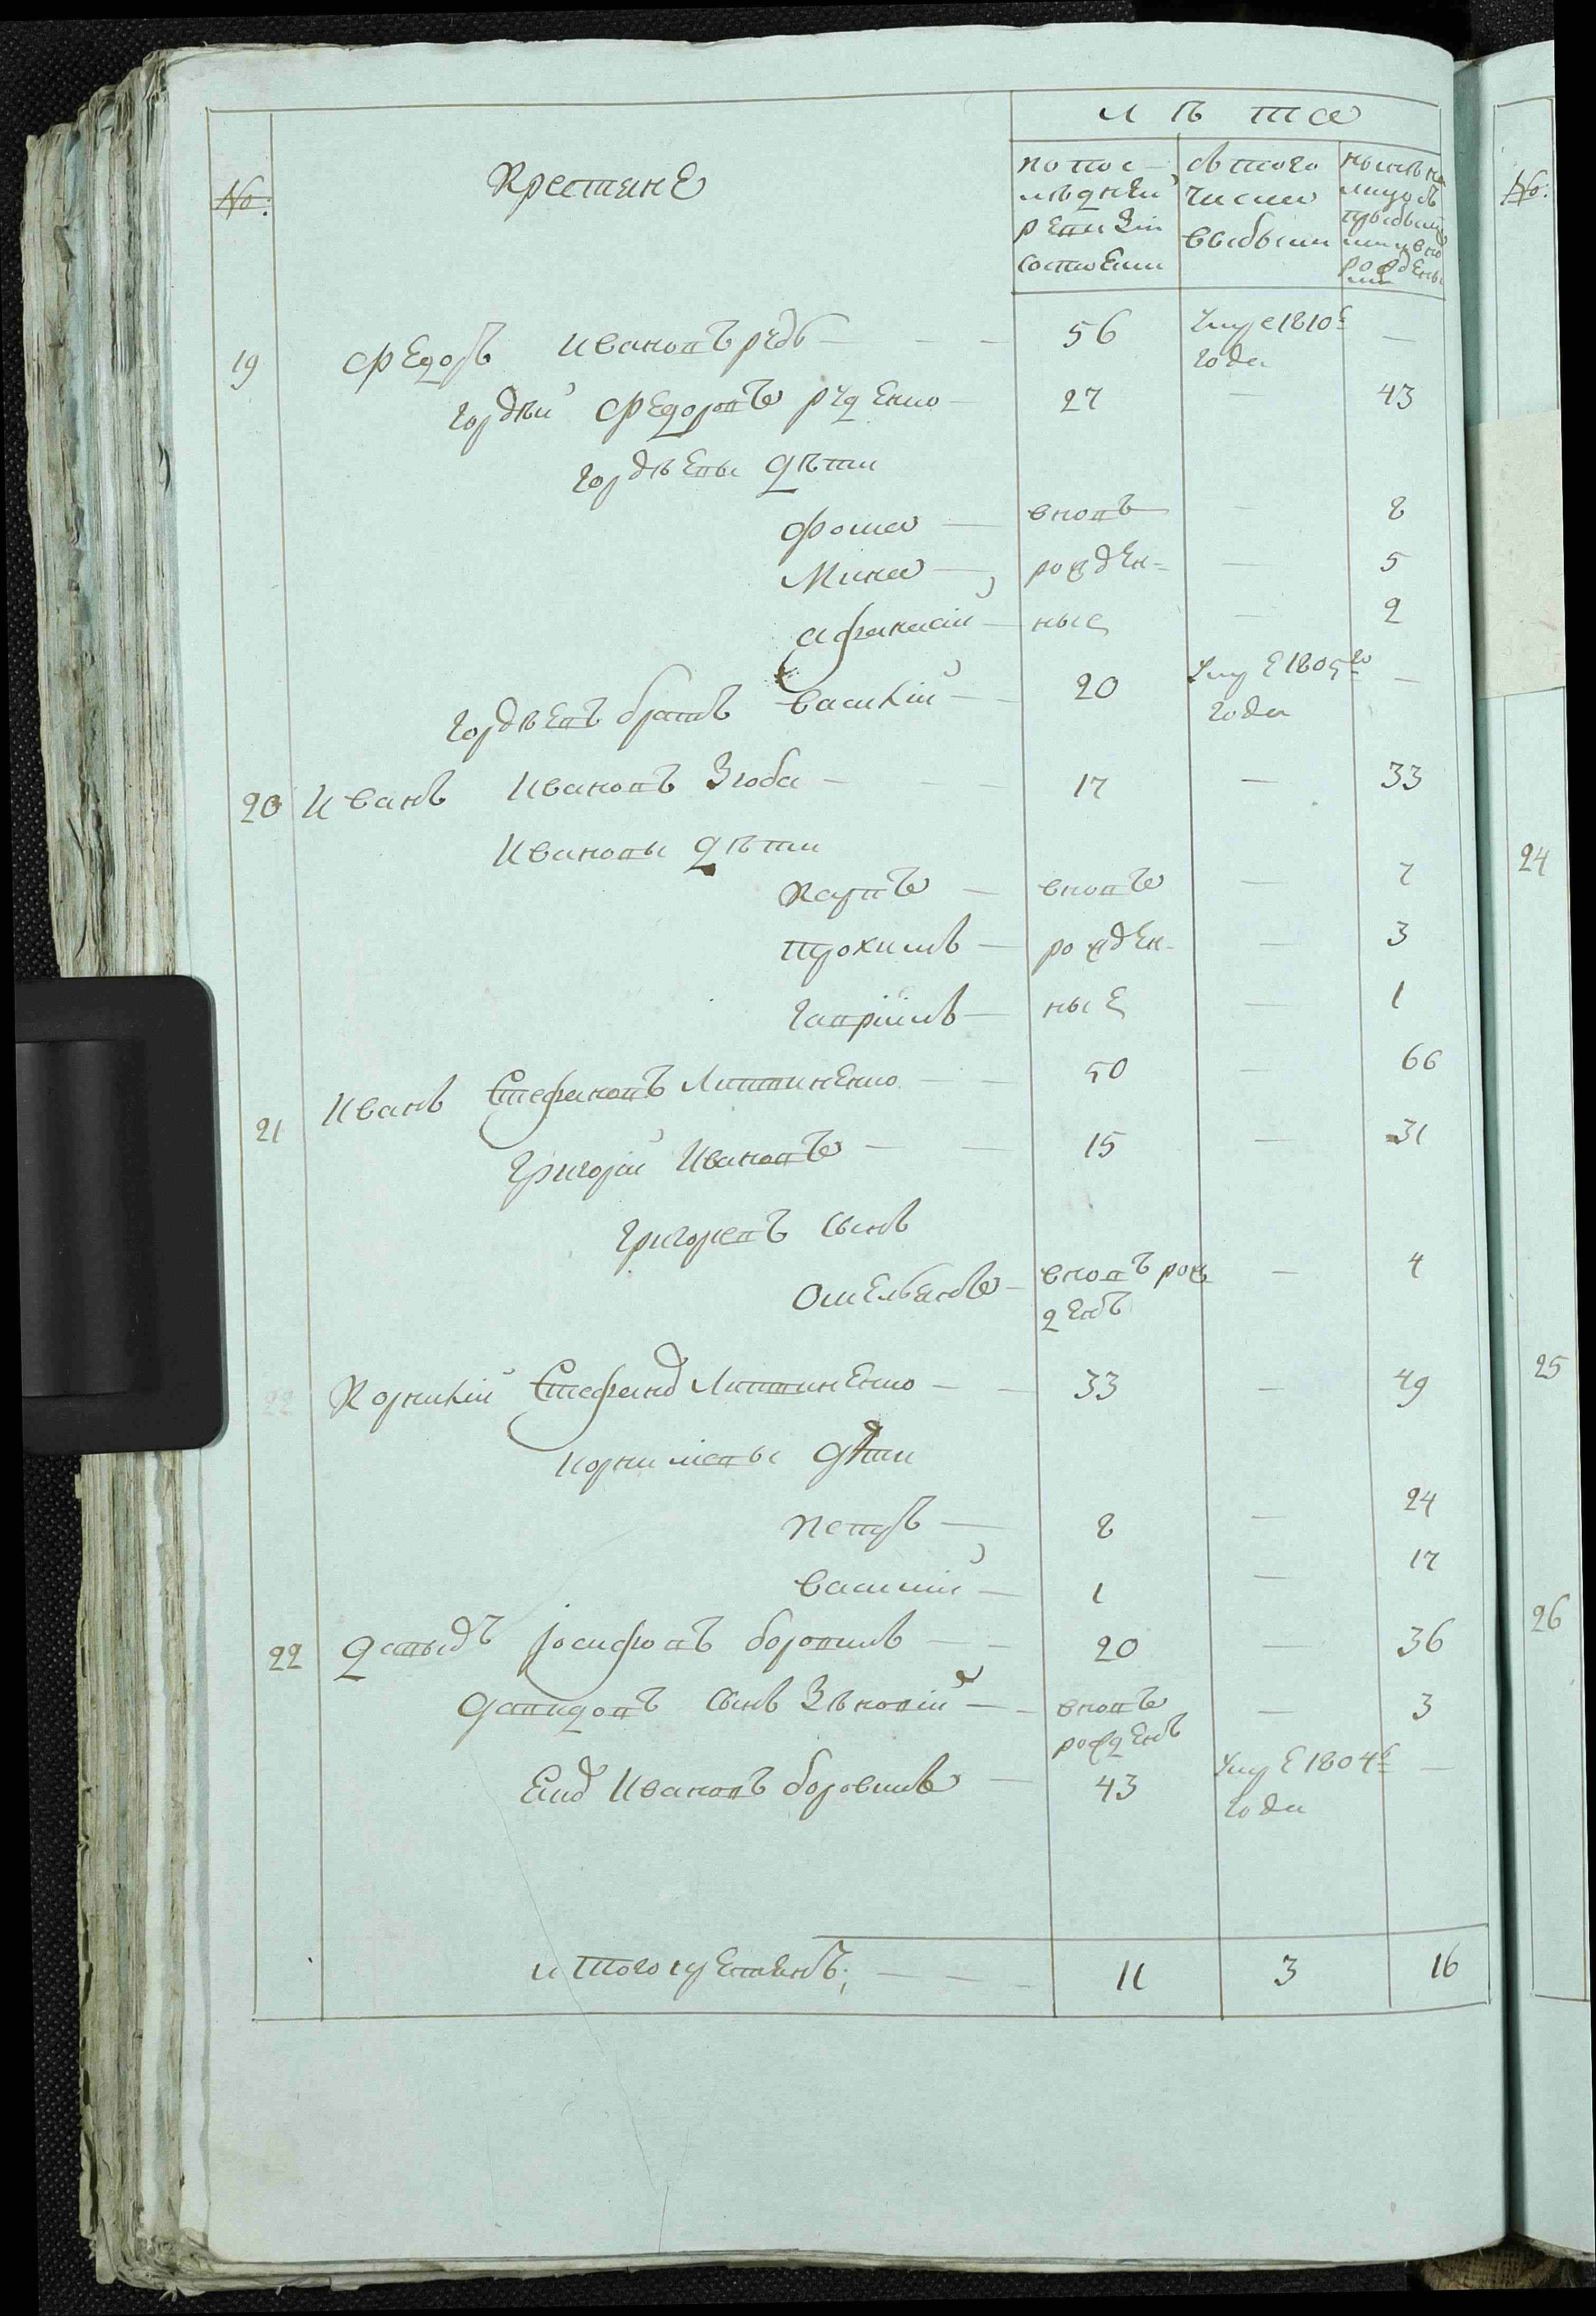 Лѣта
№:
Крестяне
по пос-
лѣдней
ревизіи
состоѣли
съ того
числа
выбыли
нынѣ на
лицо съ
прибыли
ми и вно
рожденны
ми
19 Федоръ Ивановъ Рудь — 56 умре 1810г года —
Гордѣй Федоровъ Руденко — 27 — 43
Гордѣевы дѣти
Фома — вновь — 8
Мина — рожден- — 5
Афанасій — ные — 2
Гордѣевъ братъ Василій — 20 умре 1805го года —
20 Иванъ Ивановъ Зюба — 17 — 33
Ивановы дѣти
Карпъ — вновь — 7
Трохимъ — рожден- — 3
Гавріилъ — ные — 1
21 Иванъ Стефановъ Литвиненко — 50 — 66
Григорій Ивановъ — 15 — 31
Григоревъ сынъ
Омельянъ — вновь рож — 4
денъ
22 Корнилій Стефанъ Литвиненко — 33 — 49
Корниліевы дѣти
Петръ — 8 — 24
Василій — 1 — 17
22 Давыдъ Іосифовъ Боровикъ — 20 — 36
Давидовъ сынъ Зѣновій — вновь — 3
рожденъ
Ивановъ Боровикъ — 43 умре 1804г —
года
Итого крестянъ: — 11 3 16
№:
24
25
26